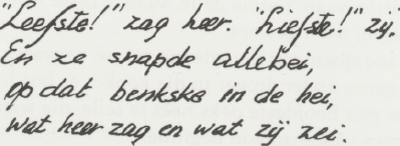 "Leefste!" zag heer. "Liefste!" zij.
En ze snapde allebei,
op dat benkske in de hei,
wat heer zag en wat zij zei.